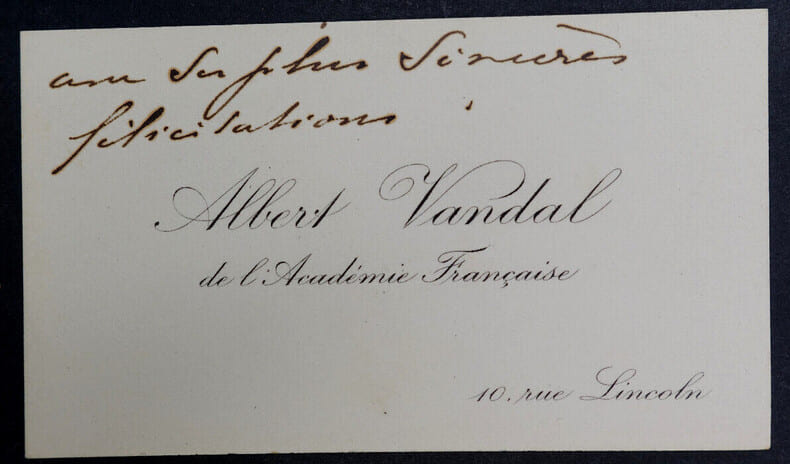 avec ses plus sincères
félicitations.
Albert Vandal
de l'Académie Française
10. rue Lincoln